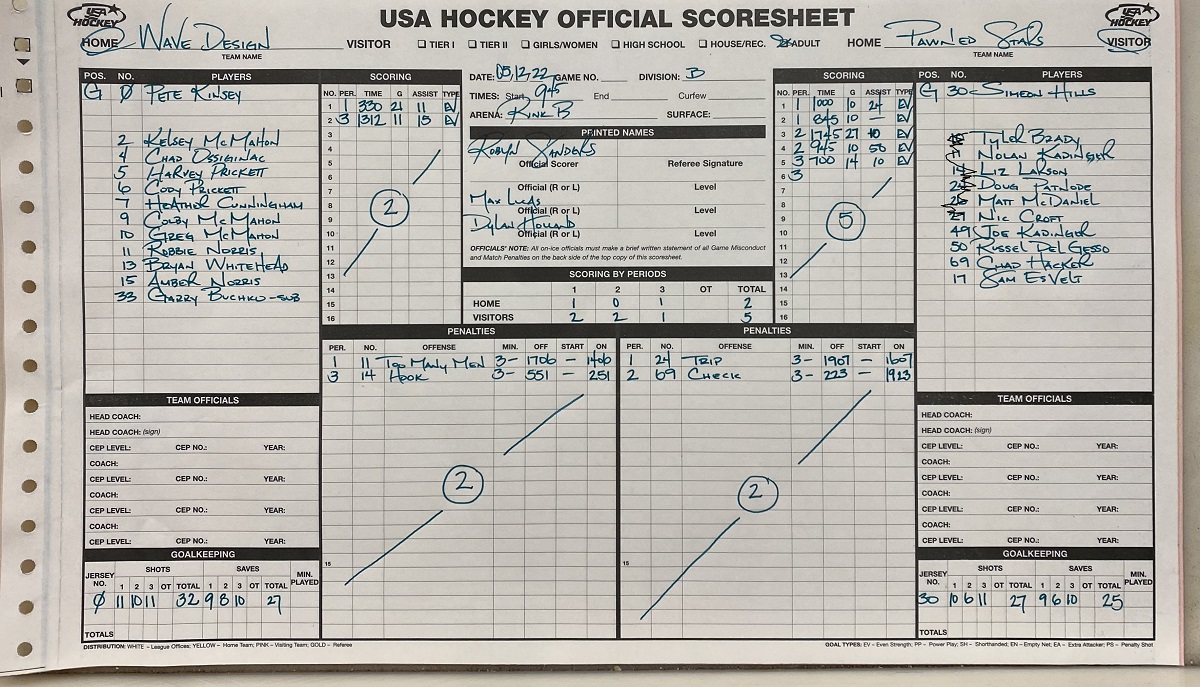 USA HOCKEY
USA HOCKEY OFFICIAL SCORESHEET
USA HOCKEY
HOME Wave Design
TEAM NAME
VISITOR ☐ TIER I ☐ TIER II ☐ GIRLS/WOMEN ☐ HIGH SCHOOL ☐ HOUSE/REC. ☒ ADULT
HOME Pawned Stars VISITOR
TEAM NAME
POS. NO. PLAYERS
G Ø Pete Kinsey
2 Kelsey McMahon
4 Chad Ossiginac
5 Harvey Prickett
6 Cody Prickett
7 Heather Cunningham
9 Colby McMahon
10 Greg McMahon
11 Robbie Norris
13 Bryan Whitehead
15 Amber Norris
33 Garry Buchko - sub
SCORING
NO. PER. TIME G ASSIST TYPE
1 1 330 21 11 EV
2 3 1312 11 15 EV
3
4
5
6
7
8
9
10
11
12
13
14
15
16
2
DATE: 05,12,22 GAME NO. DIVISION: B
TIMES: Start 945 End Curfew
ARENA: Rink B SURFACE:
PRINTED NAMES
Robyn Sanders
Official Scorer Referee Signature
Official (R or L) Level
Max Lucas
Official (R or L) Level
Dylan Holland
Official (R or L) Level
OFFICIALS' NOTE: All on-ice officials must make a brief written statement of all Game Misconduct
and Match Penalties on the back side of the top copy of this scoresheet.
SCORING BY PERIODS
1 2 3 OT TOTAL
HOME 1 0 1 2
VISITORS 2 2 1 5
SCORING
NO. PER. TIME G ASSIST TYPE
1 1 1000 10 24 EV
2 1 845 10 — EV
3 2 1745 27 10 EV
4 2 945 10 50 EV
5 3 700 14 10 EV
6 3
7
8
9
10
11
12
13
14
15
16
5
POS. NO. PLAYERS
G 30 Simeon Hills
Tyler Brady
Nolan Kadinger
14 Liz Larson
24 Doug Patnode
Matt McDaniel
27 Nic Croft
49 Joe Kadinger
50 Russel Del Gesso
69 Chad Hacker
17 Sam Esvelt
PENALTIES
PER. NO. OFFENSE MIN. OFF START ON
1 11 Too Many Men 3- 1706 — 1406
3 14 Hook 3- 551 — 251
2
15
PENALTIES
PER. NO. OFFENSE MIN. OFF START ON
1 24 Trip 3- 1907 — 1607
2 69 Check 3- 223 — 1923
2
15
TEAM OFFICIALS
HEAD COACH:
HEAD COACH: (sign)
CEP LEVEL: CEP NO.: YEAR:
COACH:
CEP LEVEL: CEP NO.: YEAR:
COACH:
CEP LEVEL: CEP NO.: YEAR:
COACH:
CEP LEVEL: CEP NO.: YEAR:
GOALKEEPING
JERSEY NO. SHOTS SAVES MIN. PLAYED
1 2 3 OT TOTAL 1 2 3 OT TOTAL
Ø 11 10 11 32 9 8 10 27
TOTALS
TEAM OFFICIALS
HEAD COACH:
HEAD COACH: (sign)
CEP LEVEL: CEP NO.: YEAR:
COACH:
CEP LEVEL: CEP NO.: YEAR:
COACH:
CEP LEVEL: CEP NO.: YEAR:
COACH:
CEP LEVEL: CEP NO.: YEAR:
GOALKEEPING
JERSEY NO. SHOTS SAVES MIN. PLAYED
1 2 3 OT TOTAL 1 2 3 OT TOTAL
30 10 6 11 27 9 6 10 25
TOTALS
DISTRIBUTION: WHITE – League Offices; YELLOW – Home Team; PINK – Visiting Team; GOLD – Referee
GOAL TYPES: EV – Even Strength; PP – Power Play; SH – Shorthanded; EN – Empty Net; EA – Extra Attacker; PS – Penalty Shot